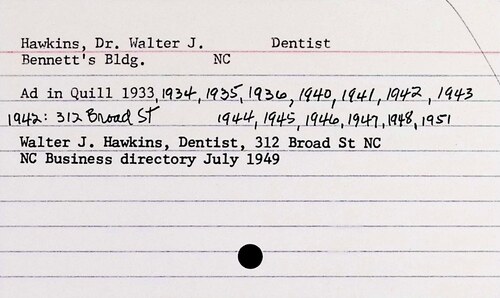 Hawkins, Dr. Walter J. Dentist
Bennett's Bldg. NC
Ad in Quill 1933, 1934, 1935, 1936, 1940, 1941, 1942, 1943
1942: 312 Broad St 1944, 1945, 1946, 1947, 1948, 1951
Walter J. Hawkins, Dentist, 312 Broad St NC
NC Business directory July 1949